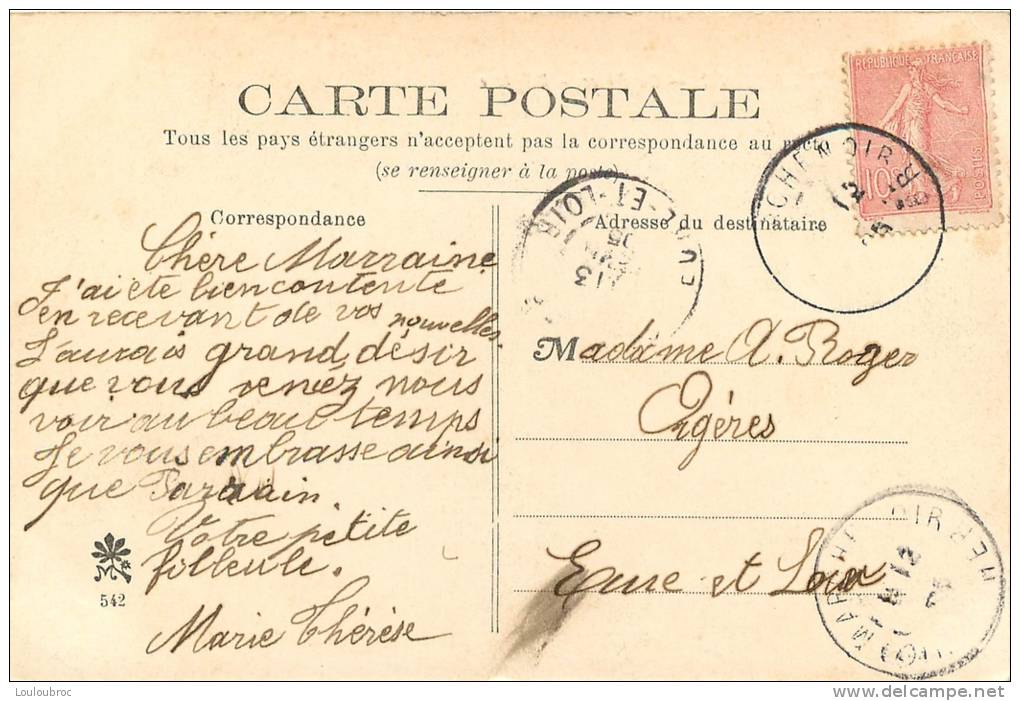 CARTE POSTALE
Tous les pays étrangers n'acceptent pas la correspondance au recto
(se renseigner à la poste)
Correspondance
Chère Marraine
J'ai été bien contente
en recevant de vos nouvelles.
J'aurais grand désir
que vous venez nous
voir au beau temps
Je vous embrasse ainsi
que Parrain.
Votre petite
filleule.
Marie Thérèse
542
Adresse du destinataire
Madame A. Roger
Orgères
Eure et Loir
REPUBLIQUE FRANÇAISE
10
POSTES
ET-LOIR
13
05
CHENOIR
12
MARCHENOIR
12
Louloubroc
delcampe.net